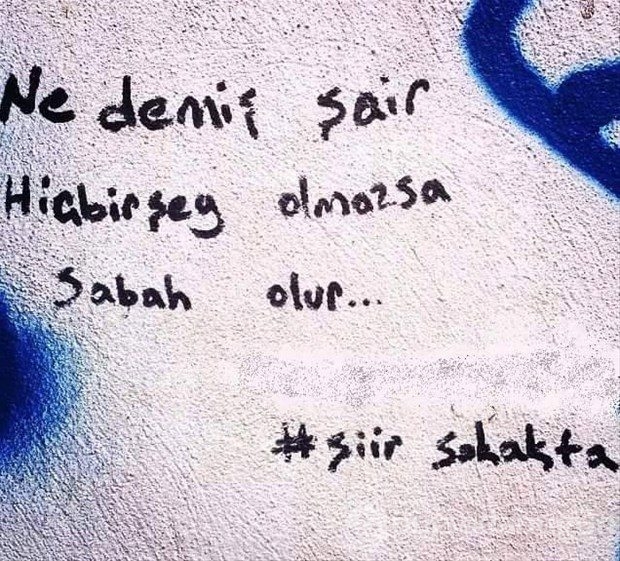 Ne demiş şair
Hiçbirşey olmazsa
Sabah olur...
#şiir sokakta